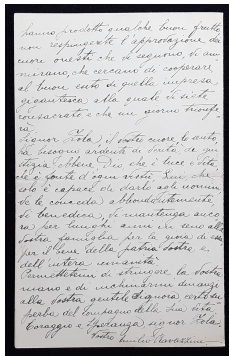 hanno prodotto qualche buon frutto,
non respingerete l'approvazione dei
cuori onesti che vi seguono, vi am
mirano, che cercano di cooperare
al buon esito di quella impresa
gigantesca, alla quale vi siete
consacrato e che un giorno trionfe
rà.
Signor Zola, il vostro cuore, lo sento,
ha bisogno ardente di verità di giu
stizia, ebbene Dio, che è luce e vita
che è fonte d'ogni virtù, Lui che
solo è capace di darlo agli uomini,
ve le conceda abbondantemente,
vi benedica, vi mantenga anco
ra per lunghi anni in seno alla
Vostra famiglia, per la gioia di essa
per il bene della patria Vostra, e
dell'intera umanità.
Permettetemi di stringere la Vostra
mano e di inchinarmi dinanzi
alla Vostra gentile Signora, certo su
perba del Compagno della Sua vita.
Coraggio e Speranza signor Zola.
Vostro Emilio